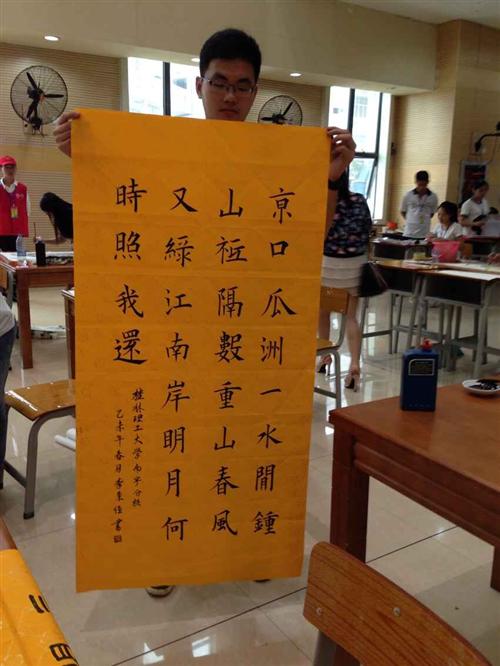 京口瓜洲一水閒鍾
山祗隔數重山春風
又綠江南岸明月何
時照我還
桂林理工大學南寧分校
乙未年春月李東佳書